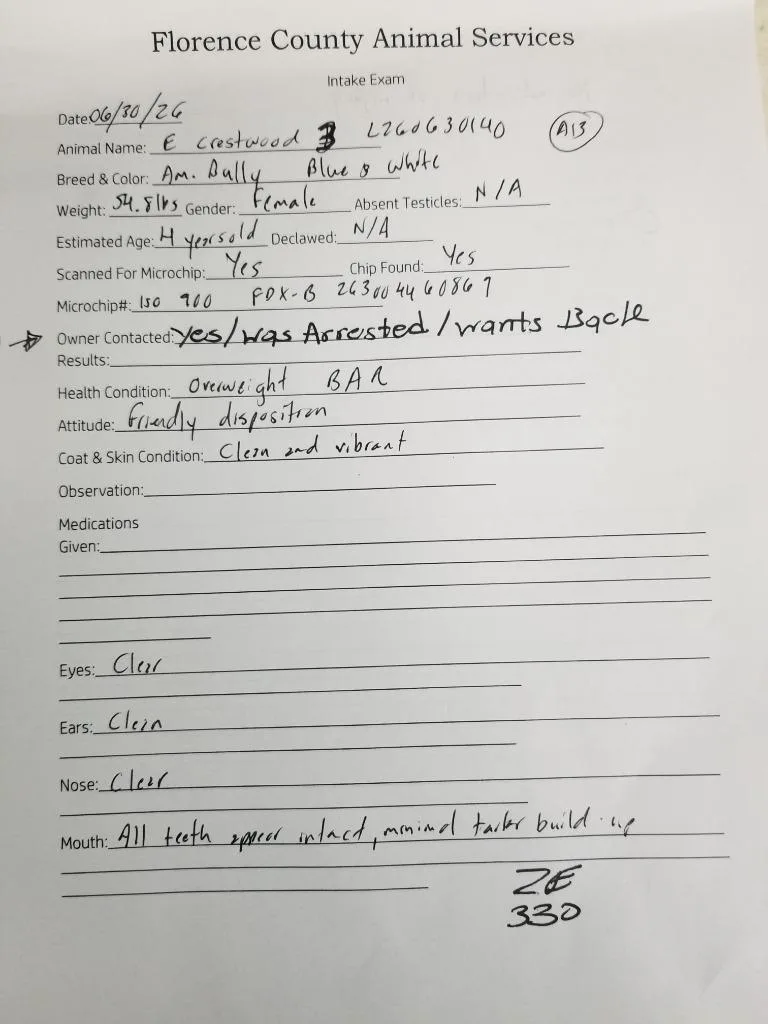 Florence County Animal Services
Intake Exam
Date: 06/30/26
Animal Name: E Crestwood 3 L260630140 A13
Breed & Color: Am. Bully Blue & White
Weight: 54.8lbs Gender: Female Absent Testicles: N/A
Estimated Age: 4 years old Declawed: N/A
Scanned For Microchip: Yes Chip Found: Yes
Microchip#: ISO 900 FDX-B 263004460867
Owner Contacted: Yes/was Arrested/wants Back
Results:
Health Condition: Overweight BAR
Attitude: Friendly disposition
Coat & Skin Condition: Clean and vibrant
Observation:
Medications
Given:
Eyes: Clear
Ears: Clean
Nose: Clear
Mouth: All teeth appear intact, minimal tarter build-up
ZE
330